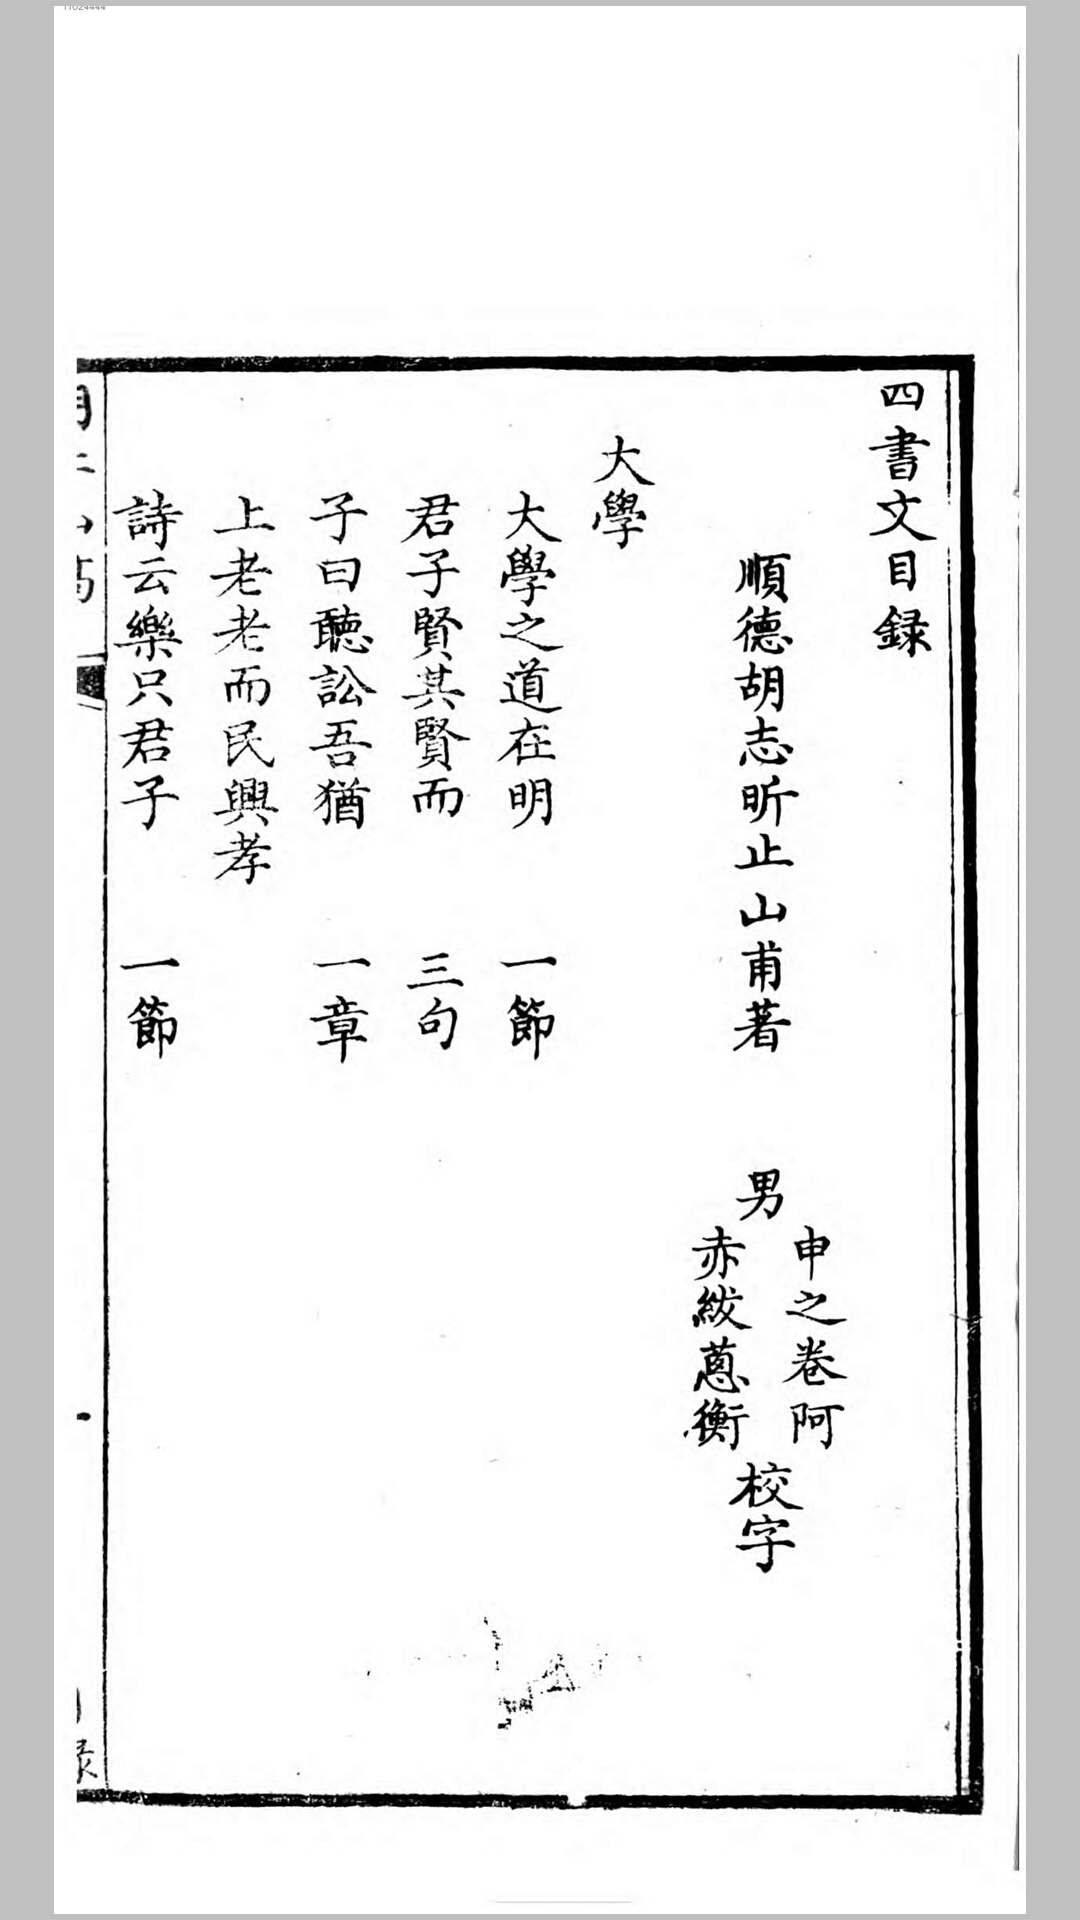 四書文目録
順德胡志昕止山甫著
男
申之卷阿
赤紱蔥衡
校字
大學
大學之道在明 一節
君子賢其賢而 三句
子曰聽訟吾猶 一章
上老老而民興孝
詩云樂只君子 一節